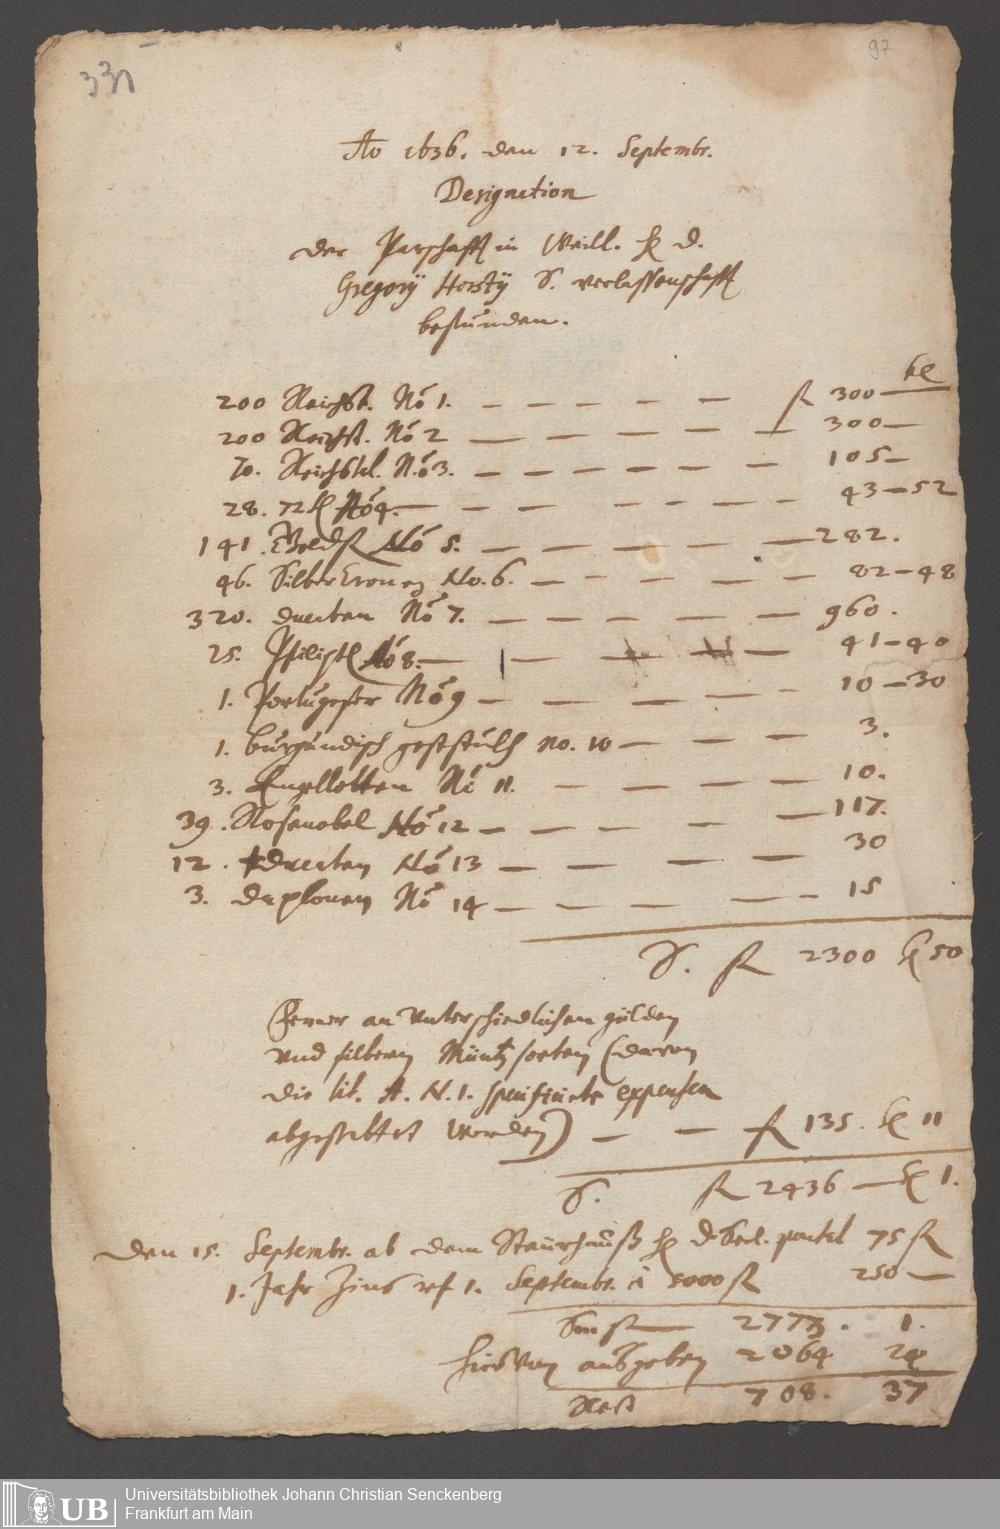 331
97
Ao 1636. den 12. Septembr.
Designation
der Parschafft in Weill. H D.
Gregorÿ Horstÿ S. verlassenschafft
befunden.
200 Reichst. No 1. — — — — — fl 300 —
200 Reichst. No 2 — — — — — 300 —
70. Reichstl. No 3. — — — — — 105 —
28. 72 No 4. — — — — — 43 — 52
141. Goldfl No 5. — — — — — 282.
46. Silber Cronen No. 6. — — — — — 82 — 48
320. ducaten No 7. — — — — — 960.
25. Philipstl No 8. — — — — — 41 — 40
1. Portugeser No 9 — — — — 10 — 30
1. burgundisch no. 10 — — — — 3.
3. Engellotten No 11. — — — — 10.
39. Rosenobel No 12 — — — — 117.
12. ducaten No 13 — — — — 30
3. duplonen No 14 — — — — 15
S. fl 2300 50
Ferner an unterschiedlichen gülden
und silbern Müntz sorten (davon
die lit. A. N. 1. specificirte expensen
abgestattet worden) — — fl 135. 11
S. fl 2436 — 1.
Den 15. Septembr. ab dem H D 75 fl
1. Jahr Zins uf 1. Septembr. à 5000 fl 250 —
Sum fl — 2773. 1.
hiervon ausgeben 2064 24
Rest 708. 37
UB
Universitätsbibliothek Johann Christian Senckenberg
Frankfurt am Main